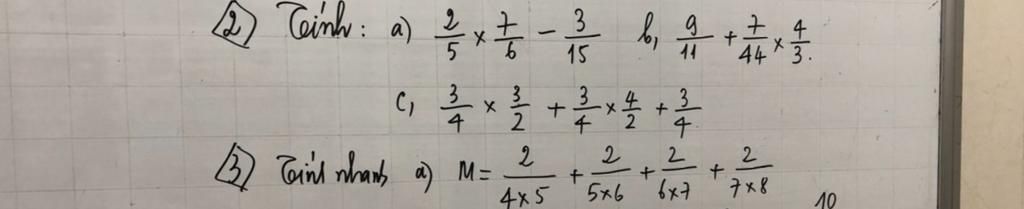 2) Tính: a) 2/5 × 7/6 - 3/15 b, 9/11 + 7/44 × 4/3.
c, 3/4 × 3/2 + 3/4 × 4/2 + 3/4
3) Tính nhanh a) M = 2/4×5 + 2/5×6 + 2/6×7 + 2/7×8
10